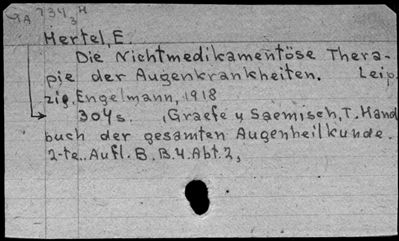 7343 H
GA
Hertel, E.
Die Nichtmedikamentöse Thera-
pie der Augenkrankheiten. Leip
zig, Engelmann, 1918
304s. (Graefe y Saemisch, T. Hand
buch der gesamten Augenheilkunde.
2-te. Aufl. B. B.4. Abt. 2,